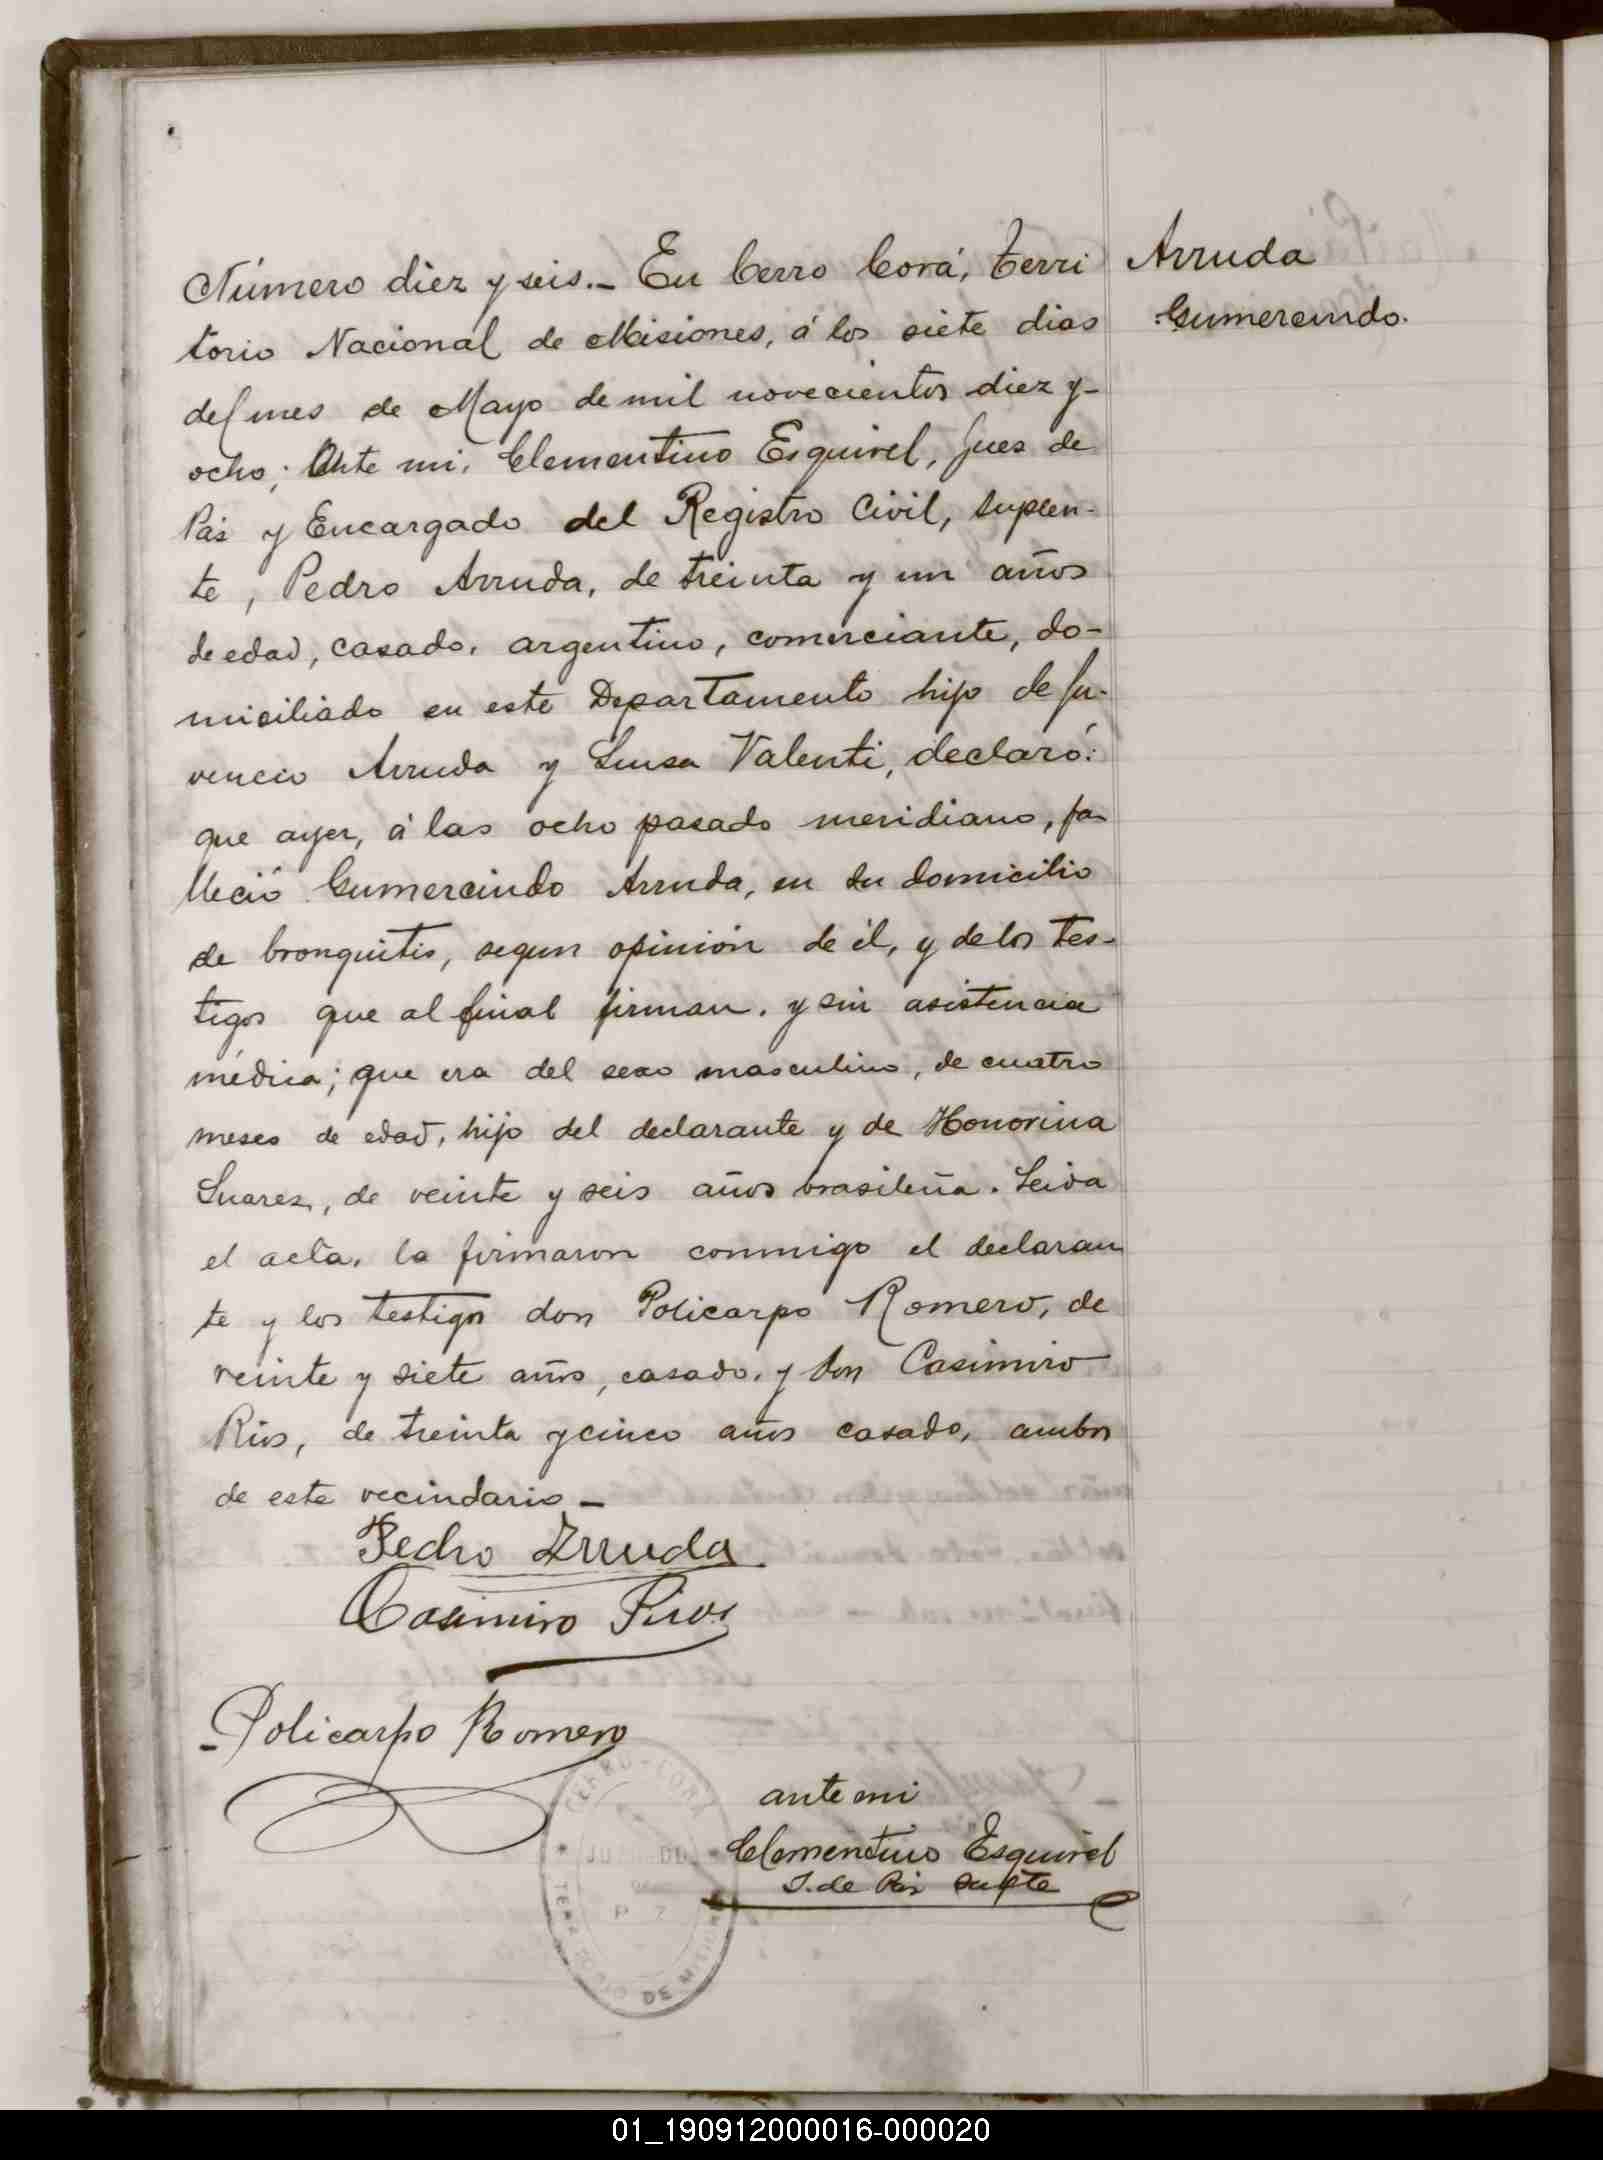 Arruda
Gumercindo.
Número diez y seis.- En Cerro Corá, Terri
torio Nacional de Misiones, á los siete dias
del mes de Mayo de mil novecientos diez y-
ocho; Ante mi, Clementino Esquivel, Juez de
Paz y Encargado del Registro Civil, suplen-
te, Pedro Arruda, de treinta y un años
de edad, casado, argentino, comerciante, do-
miciliado en este Departamento hijo de Ju-
vencio Arruda y Luisa Valenti, declaró:
que ayer, á las ocho pasado meridiano, fa
lleció Gumercindo Arruda, en su domicilio
de bronquitis, segun opinión de él, y de los tes-
tigos que al final firman, y sin asistencia
médica; que era del sexo masculino, de cuatro
meses de edad, hijo del declarante y de Honorina
Suarez, de veinte y seis años brasileña. Leida
el acta, la firmaron conmigo el declaran
te y los testigos don Policarpo Romero, de
veinte y siete años, casado, y don Casimiro
Rios, de treinta y cinco años casado, ambos
de este vecindario -
Pedro Arruda
Casimiro Rios
Policarpo Romero
ante mi
Clementino Esquivel
J. de Paz Supte
CERRO-CORÁ
TERRITORIO DE MISIONES
01_190912000016-000020